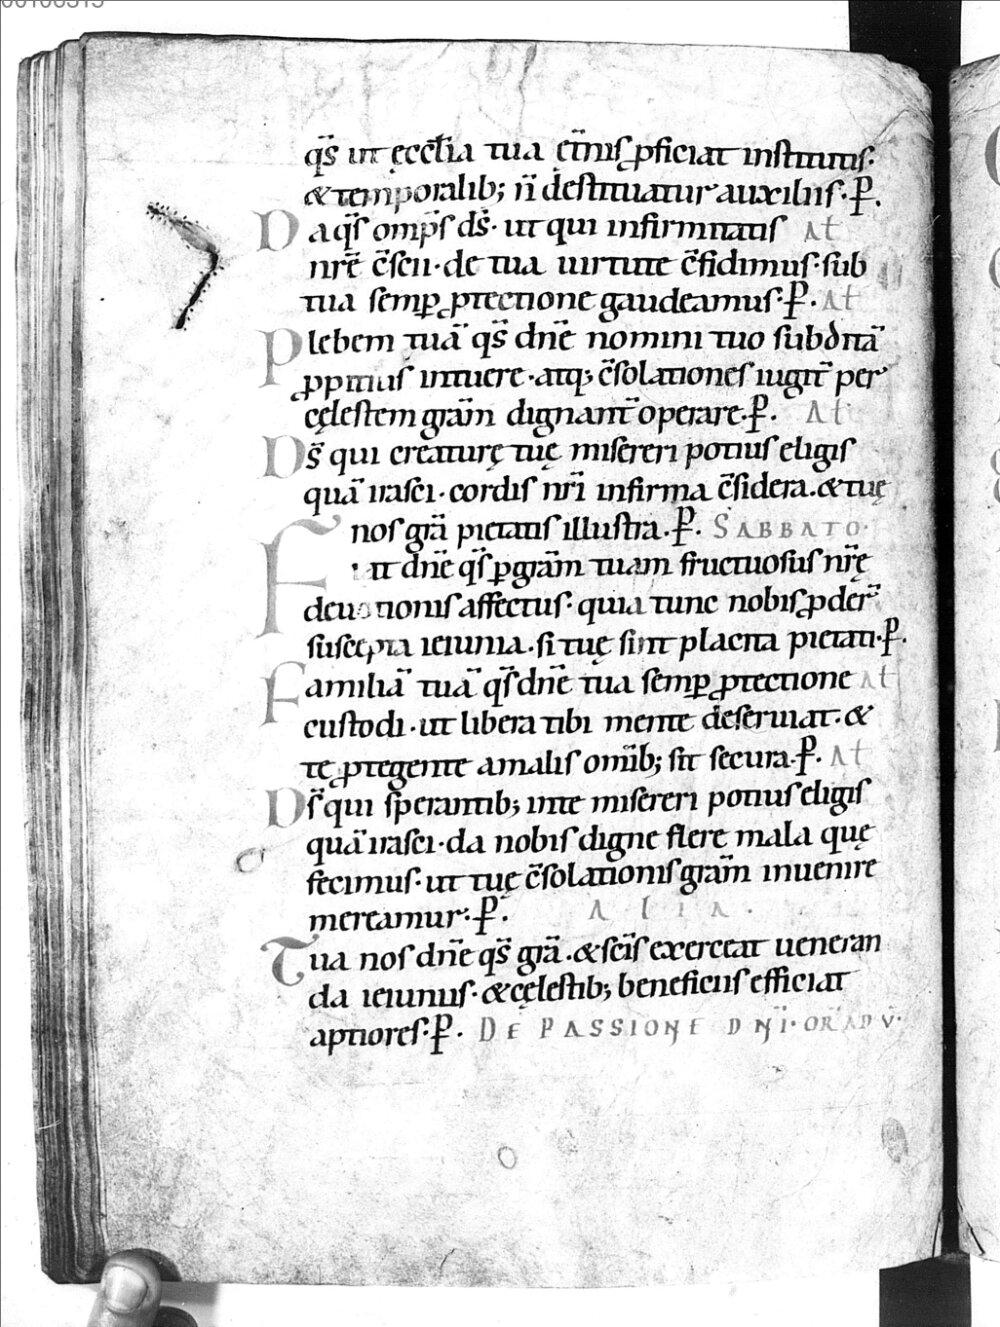 qs̄ ut ęccl̄ia tua ęt̄nis ꝓficiat institutis·
& temporalib; n̄ destituatur auxiliis·P̲.
Da qs̄ omp̄s ds̄· ut qui infirmitatis At
nrē c̄scii· de tua uirtute c̄fidimus· sub
tua semꝑ ꝓtectione gaudeamus·P̲. At
Plebem tuā qs̄ dnē nomini tuo subdita̅
ꝓpitius intuere· atq; c̄solationes iugit̄ per
cęlestem grām dignant̄ operare·P̲. At
Ds̄ qui creaturę tuę misereri potius eligis
quā irasci· cordis nr̄i infirma c̄sidera. & tuę
nos grā pietatis illustra.P̲. SABBATO·
Fiat dnē qs̄ ꝑ grām tuam fructuosus nr̄ę
deuotionis affectus· quia tunc nobis ꝓder̄
suscepta ieiunia. si tuę sint placita pietati·P̲.
Familiā tuā qs̄ dnē tua semꝑ ꝓtectione At
custodi· ut libera tibi mente deseruiat· &
te ꝓtegente amalis omīb; sit secura·P̲. At
Ds̄ qui sperantib; inte misereri potius eligis
quā irasci· da nobis digne flere mala quę
fecimus· ut tuę c̄solationis grām inuenire
mereamur·P̲. ALIA.
Tua nos dnē qs̄ grā. & scīs exerceat ueneran
da ieiuniis· & cęlestib; beneficiis efficiat
aptiores·P̲. DE PASSIONE DNI· OR AD V·